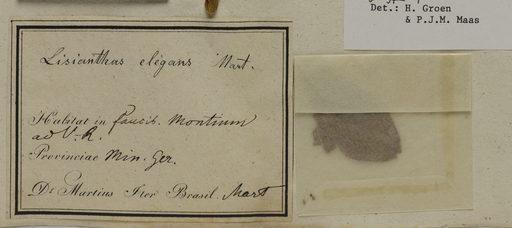 Det.: H. Groen
& P.J.M. Maas
Lisianthus elegans Mart.
Habitat in faucib. Montium
ad V. R.
Provinciae Min. Ger.
Dr Martius Iter Brasil. Mart